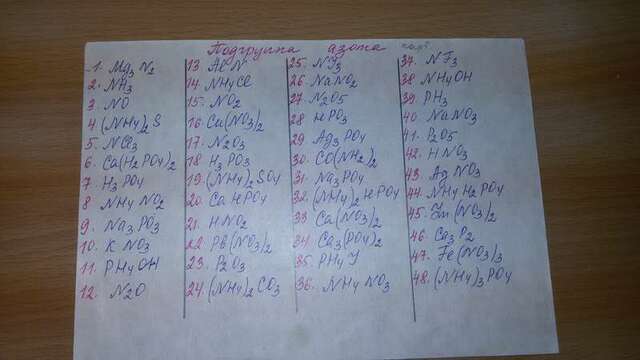 Подгруппа азота
1. Mg3N2
2. NH3
3. NO
4 (NH4)2S
5. NCl3
6. Ca(H2PO4)2
7 H3PO4
8 NH4NO2
9. Na3PO3
10. KNO3
11. PH4OH
12. N2O
13. AlN
14. NH4Cl
15. NO2
16. Ca(NO3)2
17. N2O3
18 H3PO3
19. (NH4)2SO4
20. CaHPO4
21. HNO2
22. Pb(NO3)2
23. P2O3
24. (NH4)2CO3
25. NI3
26. NaNO2
27. N2O5
28 HPO3
29 Ag3PO4
30. CO(NH2)2
31. Na3PO4
32. (NH4)2HPO4
33 Ca(NO3)2
34. Ca3(PO4)2
35. PH4I
36. NH4NO3
37. NF3
38 NH4OH
39. PH3
40. NaNO3
41. P2O5
42. HNO3
43. AgNO3
44. NH4H2PO4
45. Zn(NO3)2
46. Ca3P2
47. Fe(NO3)3
48. (NH4)3PO4